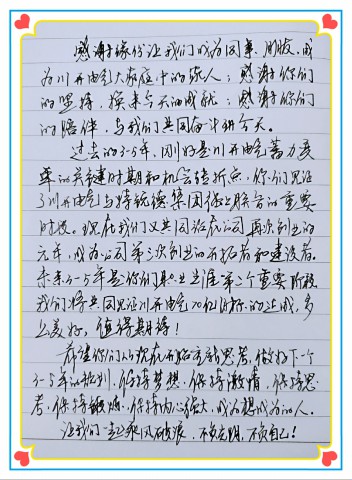 感谢缘份让我们成为同事、朋友,成
为川开电气大家庭中的家人;感谢你们
的坚持,换来今天的成就;感谢你们
的陪伴,与我们共同奋斗到今天。
过去的3-5年,刚好是川开电气蓄力变
革的关键时期和机会转折点,你们见证
了川开电气与特锐德集团强强联合的重要
时段。现在我们又共同站在公司再次创业的
元年,成为公司第三次创业的开拓者和建设者。
未来3-5年是你们职业生涯第二个重要阶段
我们将共同见证川开电气70亿目标的达成,多
么美好,值得期待!
希望你们从现在开始亦就思考,做好下一个
3-5年的规划,保持梦想、保持激情,保持思
考、保持锻炼、保持内心强大,成为想成为的人。
让我们一起乘风破浪,不负光明,不负自己!